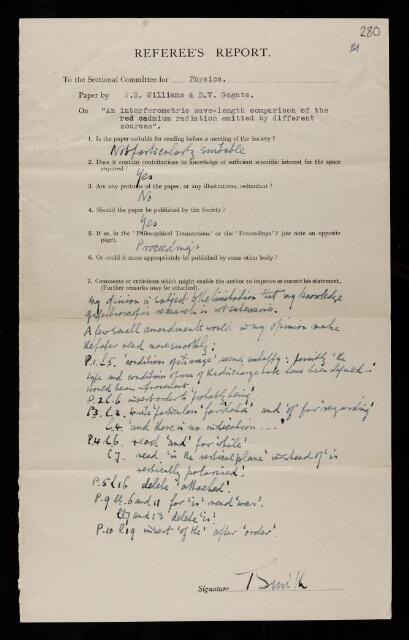 280
REFEREE'S REPORT.
To the Sectional Committee for Physics.
Paper by W.E. Williams & D.V. Gogate.
On "An interferometric wave-length comparison of the
red cadmium radiation emitted by different
sources".
1. Is the paper suitable for reading before a meeting of the Society?
Not particularly suitable
2. Does it contain contributions to knowledge of sufficient scientific interest for the space
required?
Yes
3. Are any portions of the paper, or any illustrations, redundant?
No
4. Should the paper be published by the Society?
Yes
5. If so, in the 'Philosophical Transactions' or the 'Proceedings'? (see note on opposite
page).
Proceedings
6. Or could it more appropriately be published by some other body?
7. Comments or criticisms which might enable the author to improve or correct his statement.
(Further remarks may be attached).
My opinion is subject to the limitation that my knowledge
of spectroscopic research is not extensive.
A few small amendments would in my opinion make
the paper read more smoothly:
P.1. L5. 'conditions of its usage' seems unhappy: possibly 'the
type and conditions of use of the discharge tube have been defined—'
would be an improvement.
P.2 L.6 invert order to 'probably being'
P.3. L.2. write 'particulars' for 'data' and 'of' for 'regarding'
L.4. 'and there is no indication ...'
P.4. L6. read 'and' for 'while'
L7. read 'in the vertical plane' instead of 'is
vertically polarised'.
P.5 L16 delete 'attached'.
P.9 LL. 6 and 11 for 'is' read 'was'.
LL7 and 13 delete 'is'.
P.10 L19 insert 'of the' after 'order'.
Signature T Smith